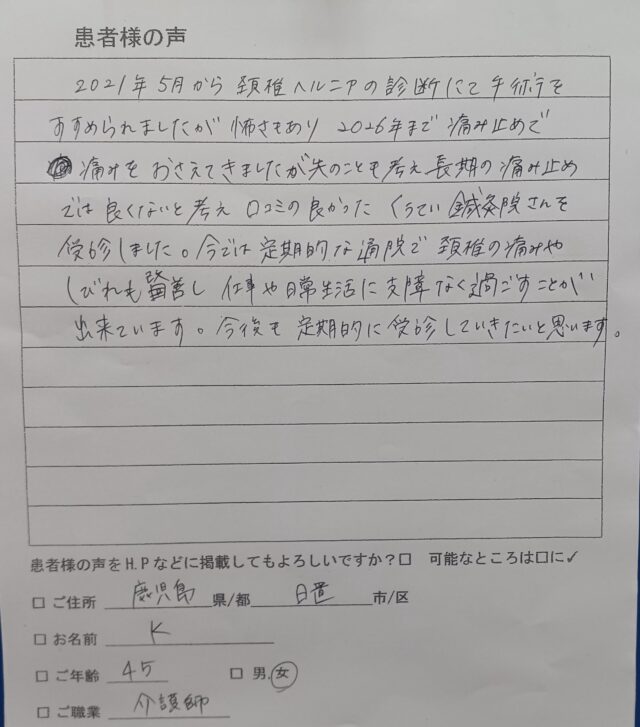 患者様の声
2021年5月から 頚椎ヘルニアの診断にて手術を
すすめられましたが 怖さもあり 2026年まで 痛み止めで
痛みを おさえてきましたが先のことも考え長期の痛み止め
では 良くないと考え 口コミの良かった くうてい鍼灸院さんを
受診しました。今では定期的な通院で 頚椎の痛みや
しびれも 改善し 仕事や日常生活に支障なく過ごすことが
出来ています。今後も 定期的に受診していきたいと思います。
患者様の声をH.Pなどに掲載してもよろしいですか?□ 可能なところは□に✓
□ ご住所 鹿児島 県/都 日置 市/区
□ お名前 K
□ ご年齢 45 □ 男.女
□ ご職業 介護師